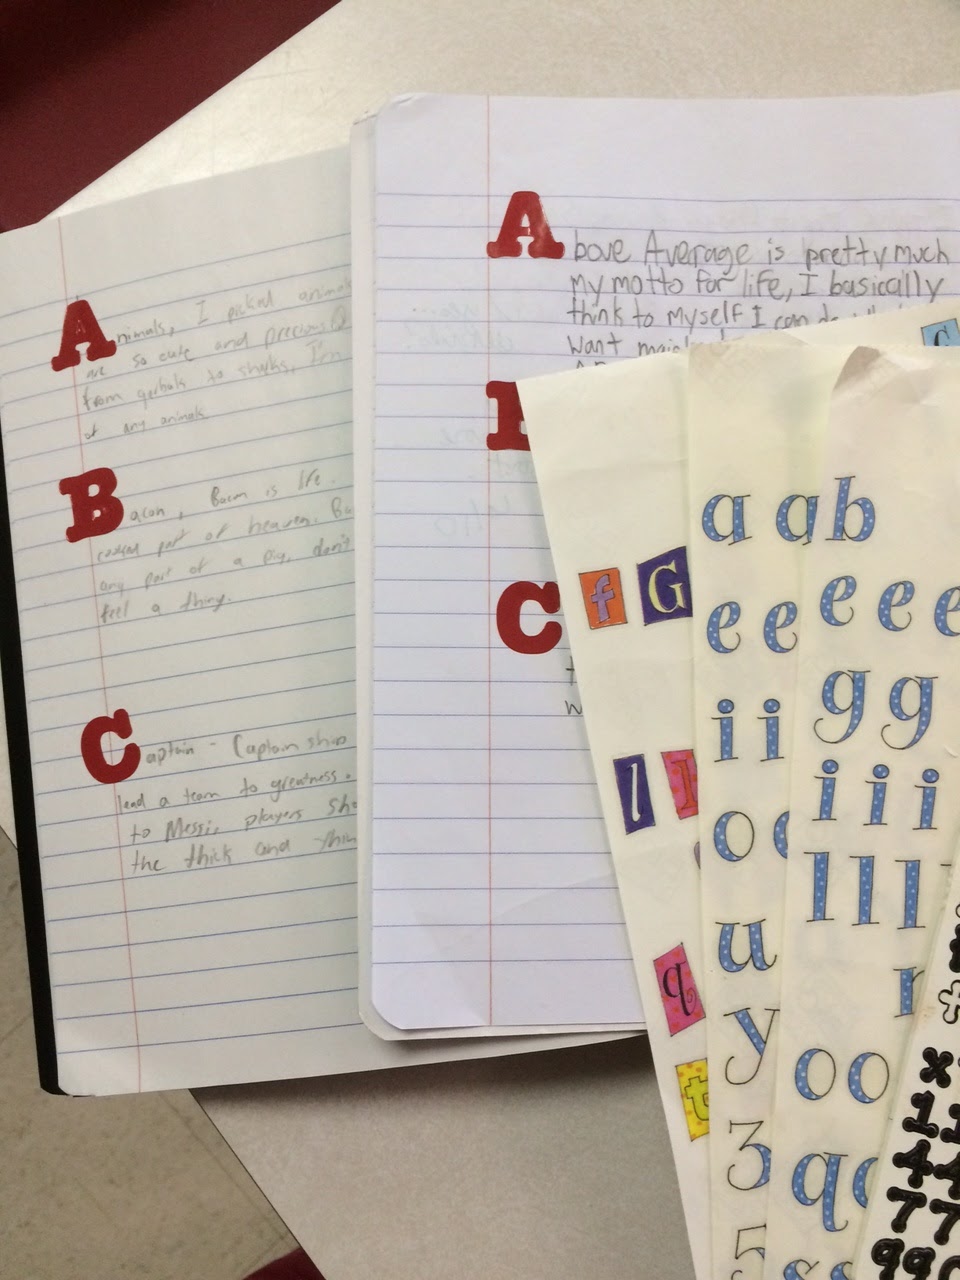 Animals, I picked animals
are so cute and precious
from gerbals to sharks, I'm
of any animals
Bacon, Bacon is life.
cooked part of heaven. Ba
any part of a pig, don't
feel a thing.
Captain - Captain ship
lead a team to greatness.
to Messi, players sho
the thick and thin
Above Average is pretty much
my motto for life, I basically
think to myself I can do
want
C
f G
l l
q
t
a a
e e
i i
o
u
y
3
5
b
e e e
g g
i i i
l l l
r
o o
q
s s
c
x
1 1
4 4
7 7
9 9